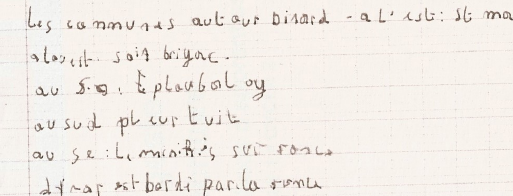 Les communes autour binard - a L'est: St ma
a louest. soit brignac.
au S.O. : Eplaubol oy
au sud pleurtuit
au se: Le minihis sur rance
dinar est bordi par la rance